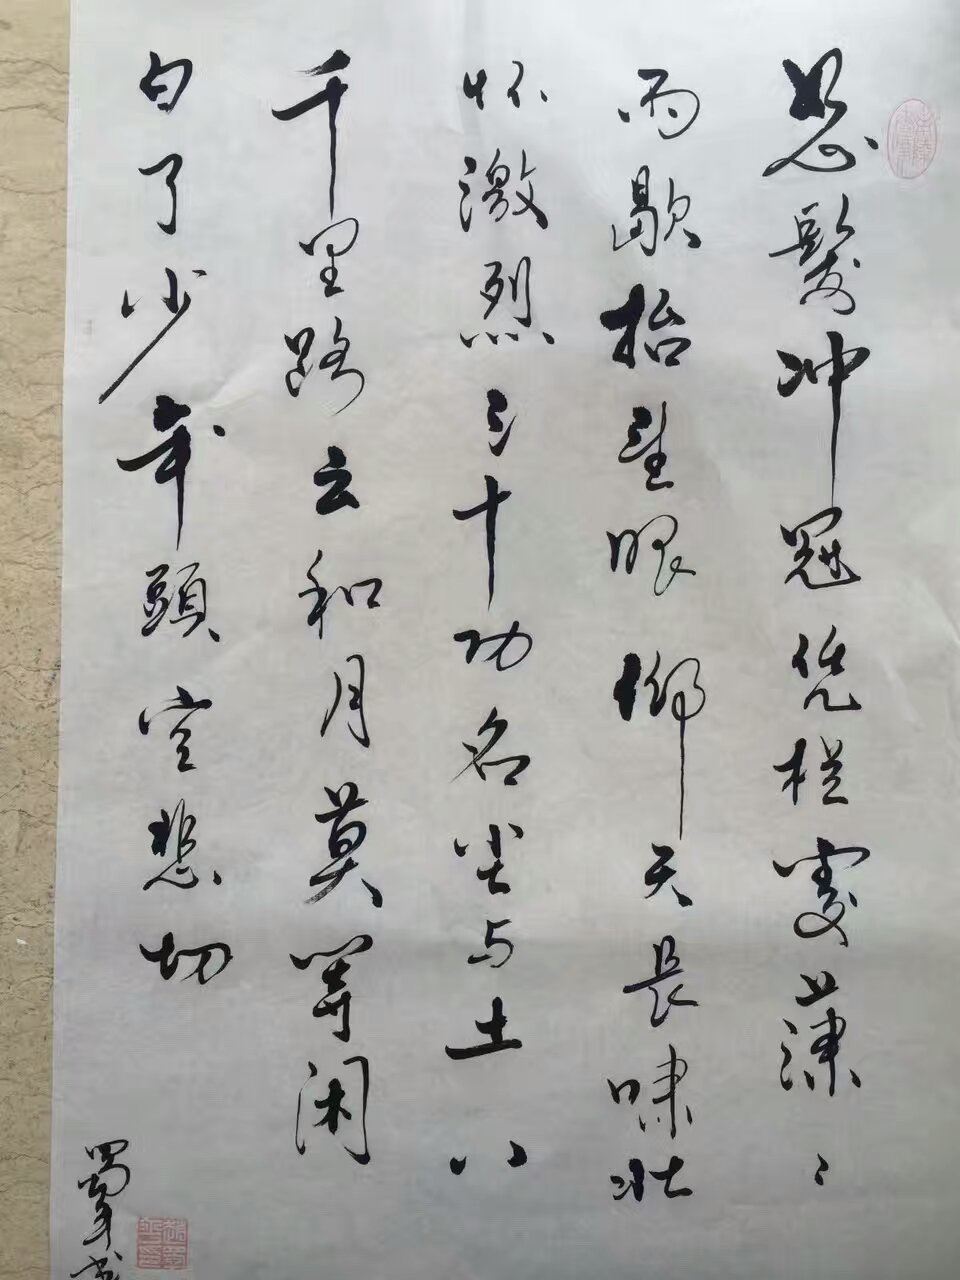 怒髮冲冠凭栏处潇〻
雨歇抬望眼仰天长啸壮
怀激烈三十功名尘与土八
千里路云和月莫等闲
白了少年頭空悲切